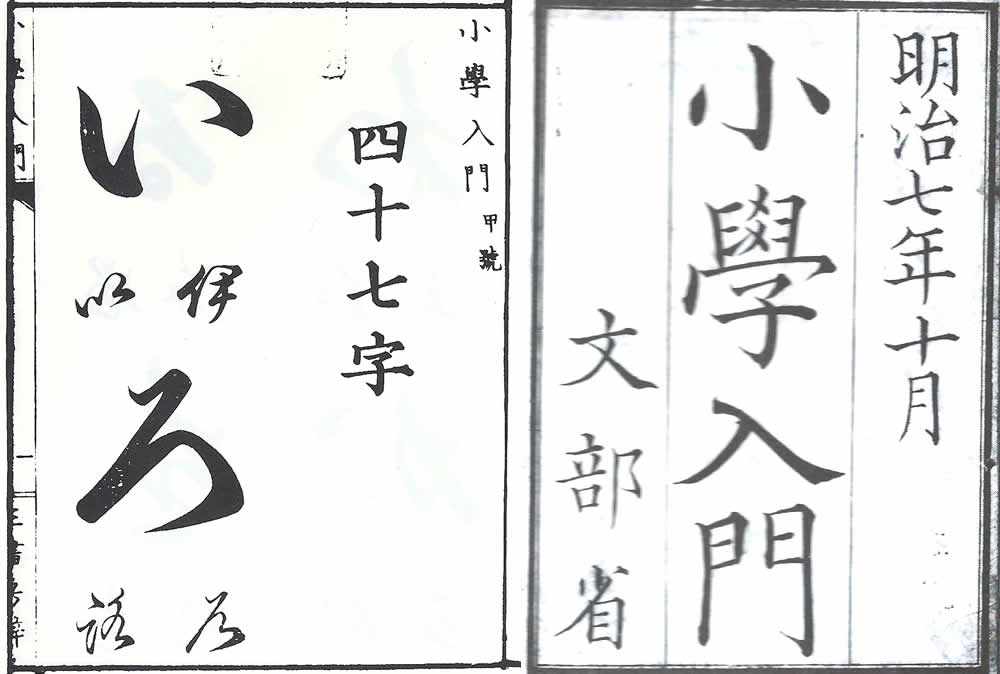 明治七年十月
小學入門
文部省
小學入門 甲號
四十七字
い
伊
以
ろ
路
小學入門
一